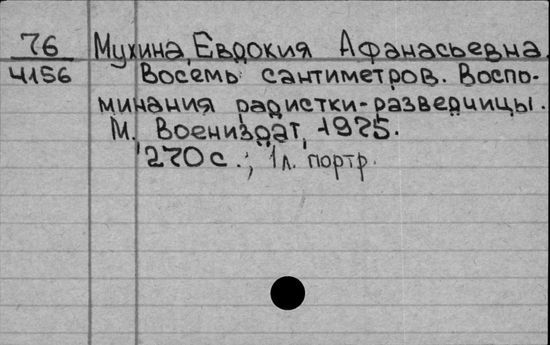 76 Мухина, Евдокия Афанасьевна.
4156 Восемь сантиметров. Воспо-
минания радистки-разведчицы.
М. Воениздат, 1975.
270 с.; 1 л. портр.